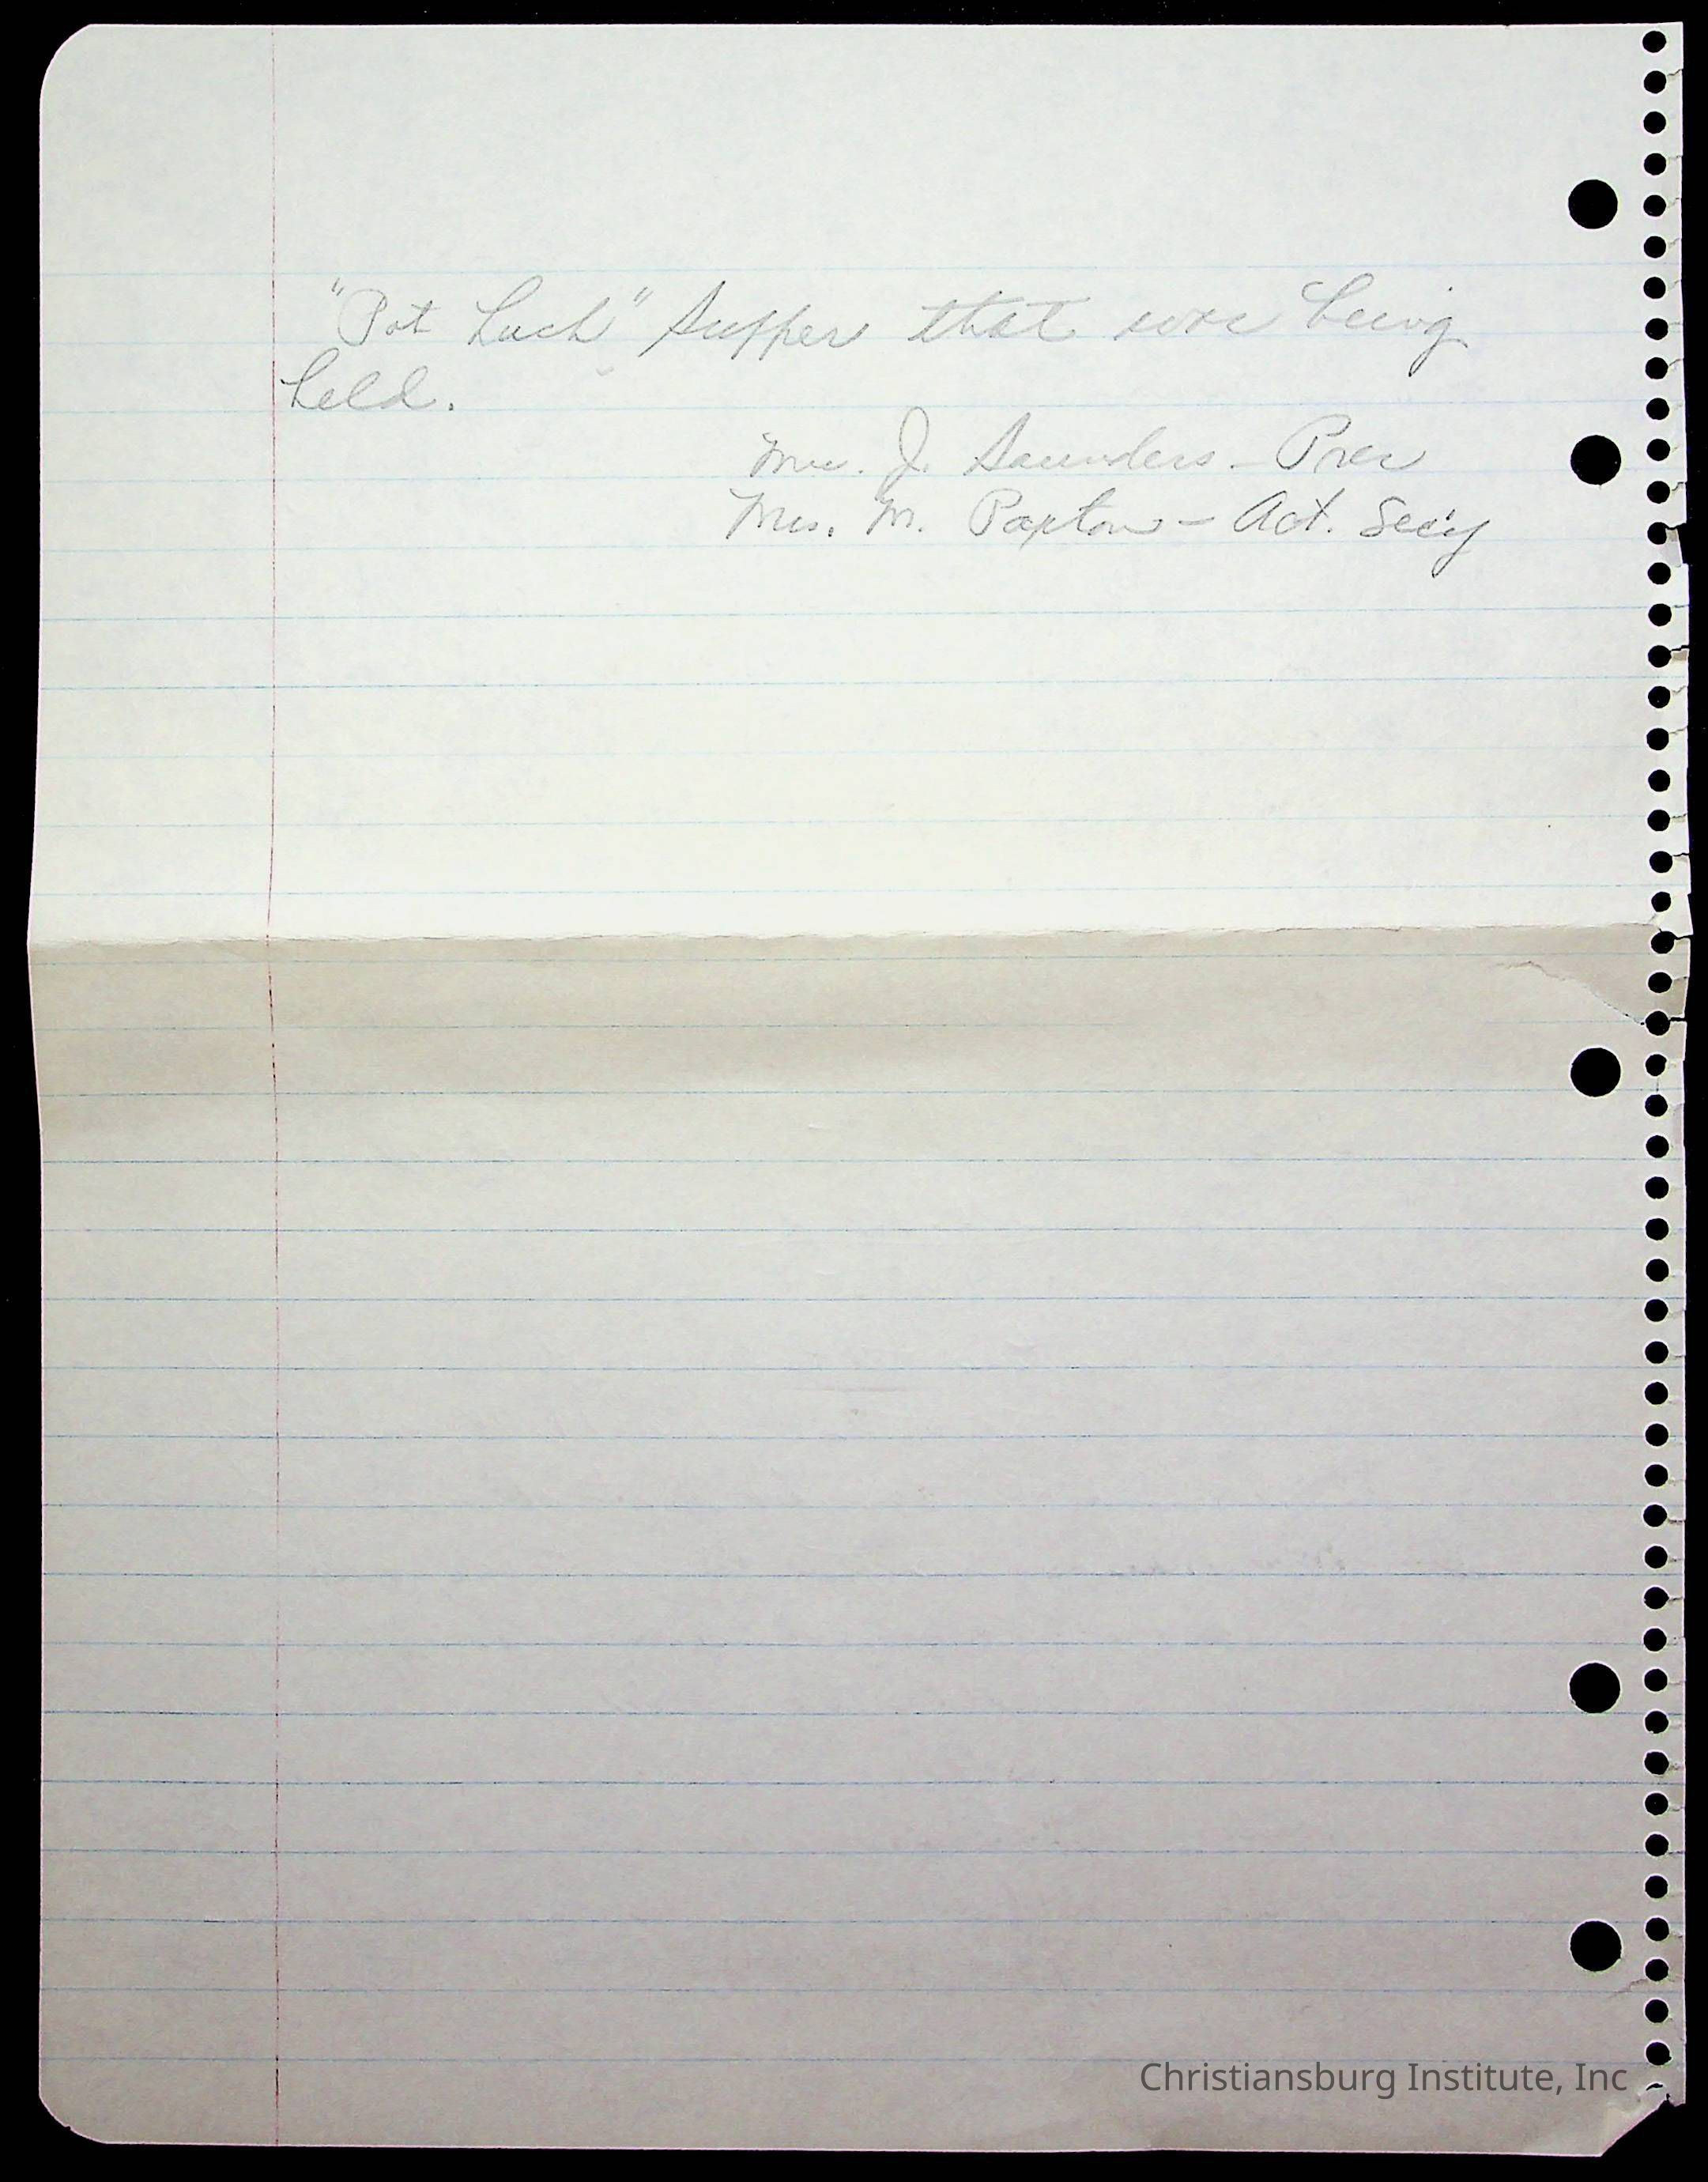 "Pot Luck" Supper that was being
held.
Mrs. J. Saunders - Pres
Mrs. M. Paxton - Act. Sec'y
Christiansburg Institute, Inc